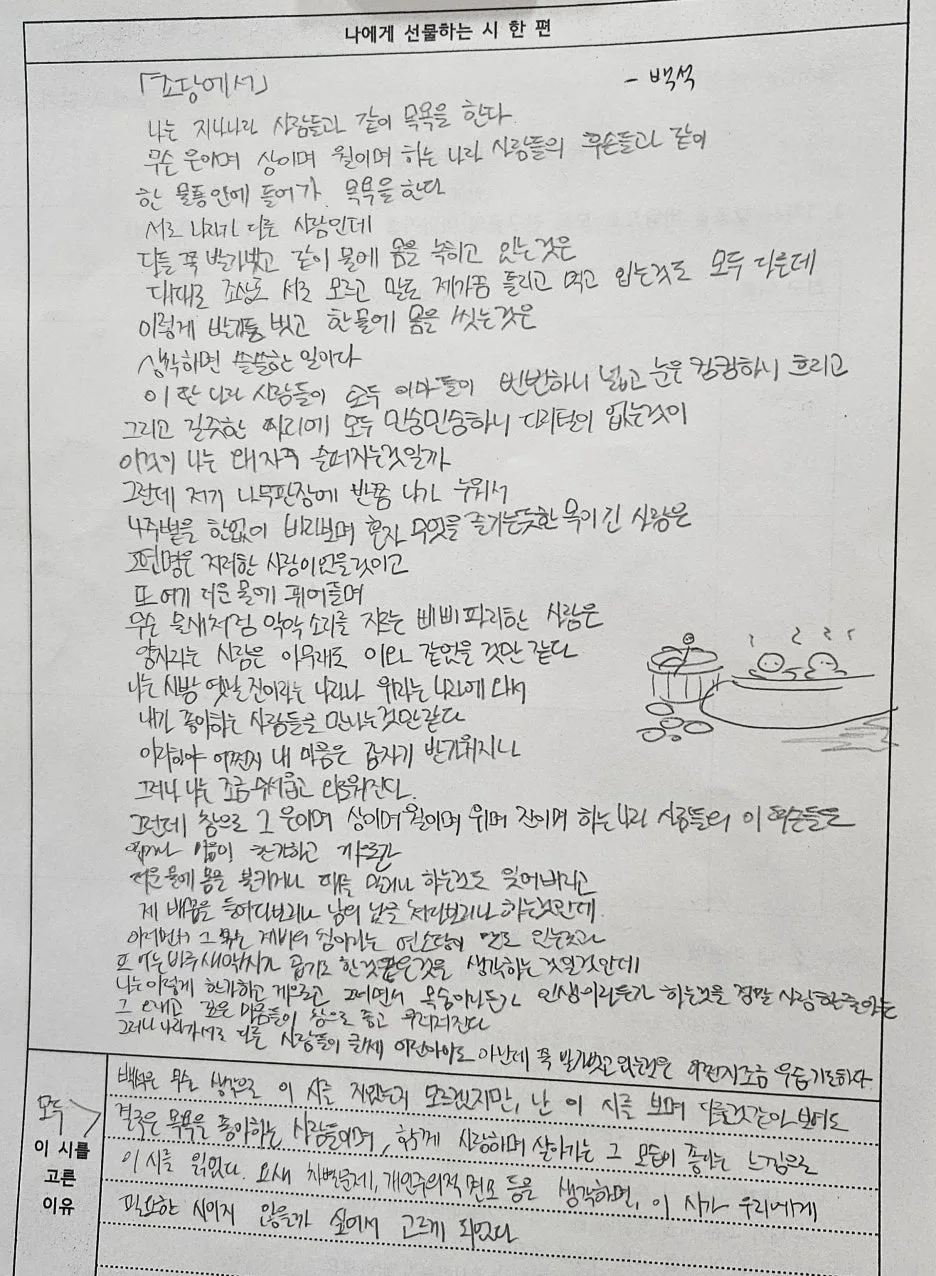 나에게 선물하는 시 한 편
「조당에서」 - 백석
나는 지나나라 사람들과 같이 목욕을 한다
무슨 은이며 상이며 월이며 하는 나라 사람들의 후손들과 같이
한 물통안에 들어가 목욕을 한다
서로 나라가 다른 사람인데
다들 쪽 발가벗고 같이 물에 몸을 녹히고 있는것은
대대로 조상도 서로 모르고 말도 제가끔 틀리고 먹고 입는것도 모두 다른데
이렇게 발가들 벗고 한물에 몸을 씻는것은
생각하면 쓸쓸한 일이다
이 딴 나라 사람들이 모두 이마들이 번번하니 넓고 눈은 컴컴하니 흐리고
그리고 길즛한 다리에 모두 민숭민숭하니 다리털이 없는것이
이것이 나는 왜 자꾸 슬퍼지는것일까
그런데 저기 나무판장에 반쯤 나가 누워서
나주볕을 한없이 바라보며 혼자 무엇을 즐기는듯한 목이 긴 사람은
도연명은 저러한 사람이었을것이고
또 여기 더운 물에 뛰어들며
무슨 물새처럼 악악 소리를 지르는 삐삐 파리한 사람은
양자라는 사람은 아무래도 이와 같았을 것만 같다
나는 시방 옛날 진이라는 나라나 위라는 나라에 와서
내가 좋아하는 사람들을 만나는것만 같다
이리하야 어쩐지 내 마음은 갑자기 반가워지나
그러나 나는 조금 무서웁고 외로워진다.
그런데 참으로 그 은이며 상이며 월이며 위며 진이며 하는 나라 사람들의 이 후손들은
얼마나 마음이 한가하고 게으른가
더운 물에 몸을 불키거나 때를 밀거나 하는것도 잊어버리고
제 배꼽을 들여다보거나 남의 낯을 쳐다보거나 하는것인데
이러면서 그 무슨 제비의 춤이라는 연소탕이 맛도 있는것과
또 어느바루 새악씨가 곱기도 한것 같은것을 생각하는것일것인데
나는 이렇게 한가하고 게으르고 그러면서 목숨이라든가 인생이라든가 하는것을 정말 사랑할줄아는
그 오래고 깊은 마음들이 참으로 좋고 우러러진다
그러나 나라가 서로 다른 사람들이 글쎄 어린아이도 아닌데 쪽 발가벗고 있는것은 어쩐지 조금 우습기도하다
백석은 무슨 생각으로 이 시를 지었는지 모르겠지만, 난 이 시를 보며 다를것같아 보여도
모두
결국은 목욕을 좋아하는 사람들이며, 함께 사랑하며 살아가는 그 모습이 좋다는 느낌으로
이 시를
이 시를 읽었다. 요새 차별문제, 개인주의적 면모 등을 생각하면, 이 시가 우리에게
고른
이유
필요한 시이지 않을까 싶어서 고르게 되었다